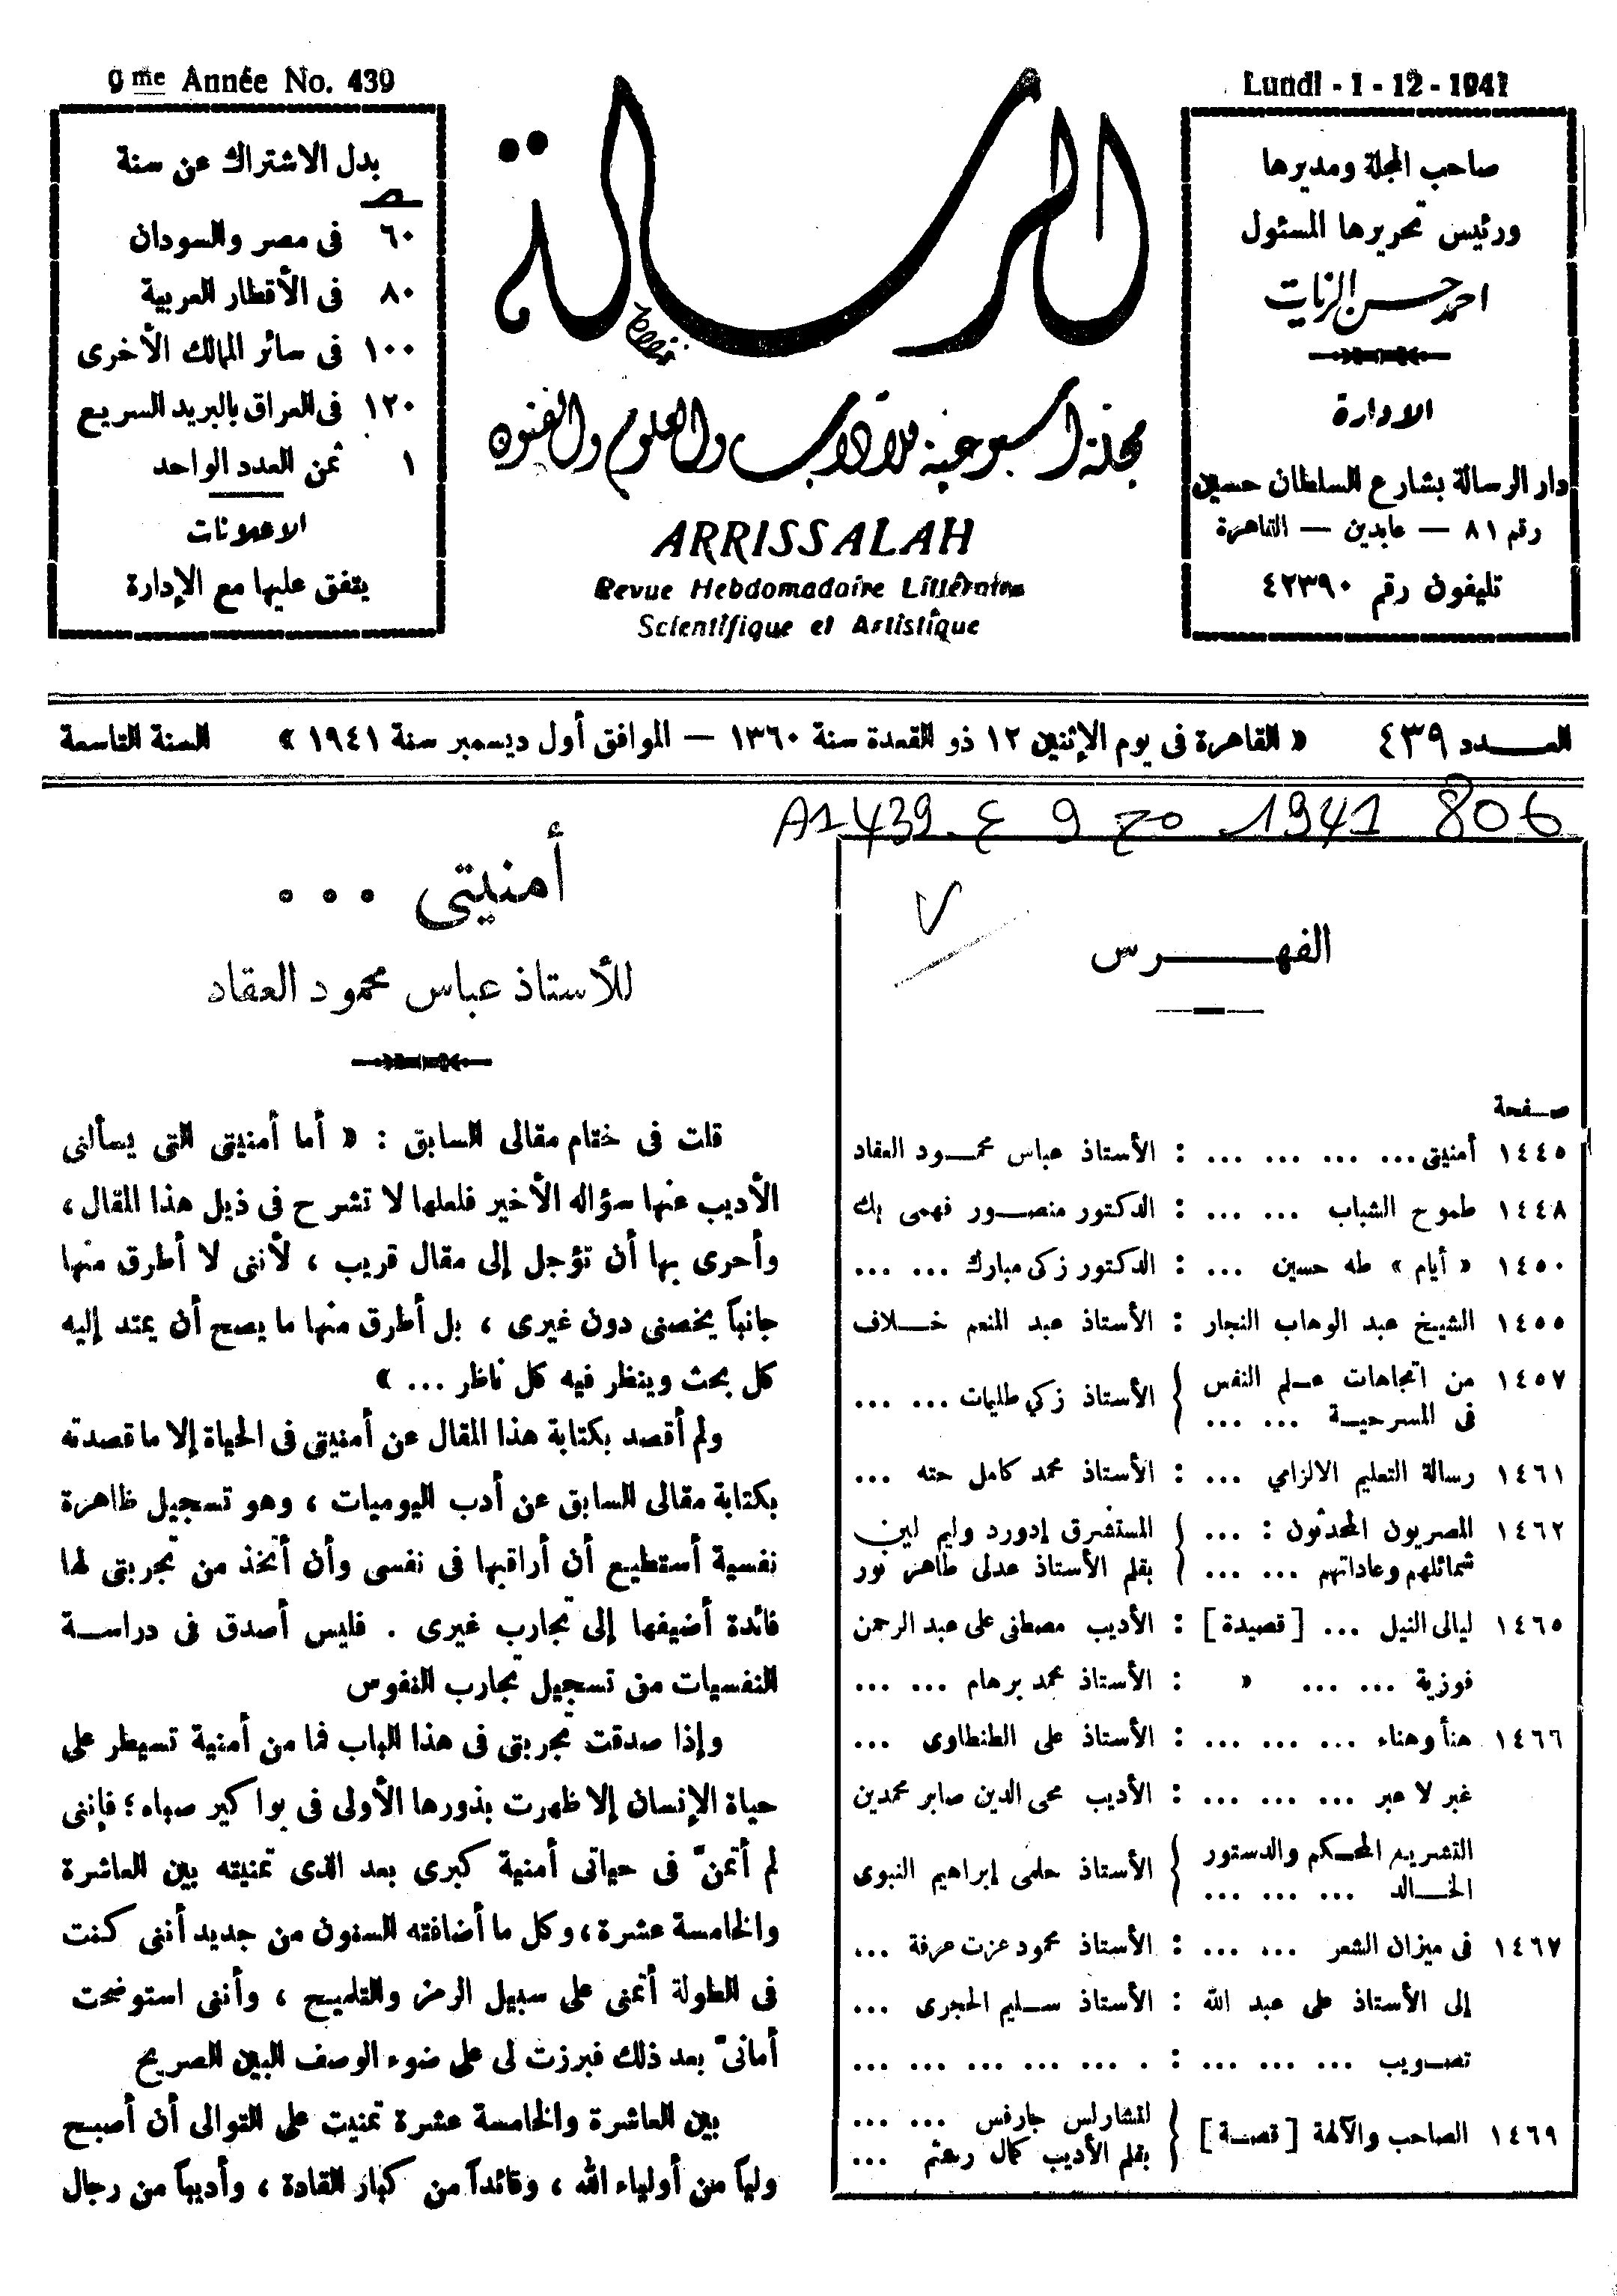 9me Année No. 439
Lundi - 1 - 12 - 1941
صاحب المجلة ومديرها
ورئيس تحريرها المسئول
احمد حسن الزيات
الادارة
دار الرسالة بشارع السلطان حسين
رقم ٨١ — عابدين — القاهرة
تليفون رقم ٤٢٣٩٠
الرسالة
مجلة أسبوعية للآداب والعلوم والفنون
ARRISSALAH
Revue Hebdomadaire Littéraire
Scientifique et Artistique
بدل الاشتراك عن سنة
٦٠ فى مصر والسودان
٨٠ فى الأقطار العربية
١٠٠ فى سائر الممالك الأخرى
١٢٠ فى العراق بالبريد السريع
١ ثمن العدد الواحد
الاعلانات
يتفق عليها مع الإدارة
العـــدد ٤٣٩ « القاهرة فى يوم الإثنين ١٢ ذو القعدة سنة ١٣٦٠ — الموافق أول ديسمبر سنة ١٩٤١ » السنة التاسعة
A1 439 ع 9 مج 1941 806
الفهـــــرس
صـفحة
١٤٤٥ أمنيتى ... ... ... ... : الأستاذ عباس محمـــود العقاد
١٤٤٨ طموح الشباب ... ... : الدكتور منصـــور فهمى بك
١٤٥٠ « أيام » طه حسين ... : الدكتور زكى مبارك ... ...
١٤٥٥ الشيخ عبد الوهاب النجار : الأستاذ عبد المنعم خـــلاف
١٤٥٧ من اتجاهات عـلم النفس فى المسرحيـة ... ... } الأستاذ زكي طليمات ... ...
١٤٦١ رسالة التعليم الالزامي ... : الأستاذ محمد كامل حته ...
١٤٦٢ المصريون المحدثون : ... } المستشرق إدورد وليم لين
شمائلهم وعاداتهم ... ... } بقلم الأستاذ عدلى طاهر نور
١٤٦٥ ليالى النيل ... [ قصيدة ] : الأديب مصطفى على عبد الرحمن
فوزية ... ... « : الأستاذ محمد برهام ... ...
١٤٦٦ هنأ وهناء ... ... ... : الأستاذ على الطنطاوى ...
غبر لا عبر ... ... ... : الأديب محى الدين صابر محمدين
التشريع المحـكم والدستور الخـــالد ... ... ... } الأستاذ حلمى إبراهيم النبوى
١٤٦٧ فى ميزان الشعر ... ... : الأستاذ محمود عزت عرفة ...
إلى الأستاذ على عبد الله : الأستاذ ســليم الحجرى ...
تصـويب ... ... ... : . ... ... ... ... ...
١٤٦٩ الصاحب والآلهة [ قصـة ] } لتشارلس جارفس ... ...
بقلم الأديب كمال رستم ...
أمنيتى ...
للأستاذ عباس محمود العقاد
قلت فى ختام مقالى السابق : « أما أمنيتى التى يسألنى
الأديب عنها سؤاله الأخير فلعلها لا تشرح فى ذيل هذا المقال ،
وأحرى بها أن تؤجل إلى مقال قريب ، لأننى لا أطرق منها
جانباً يخصنى دون غيرى ، بل أطرق منها ما يصح أن يمتد إليه
كل بحث وينظر فيه كل ناظر ... »
ولم أقصد بكتابة هذا المقال عن أمنيتى فى الحياة إلا ما قصدته
بكتابة مقالى السابق عن أدب اليوميات ، وهو تسجيل ظاهرة
نفسية أستطيع أن أراقبها فى نفسى وأن أتخذ من تجربتى لها
فائدة أضيفها إلى تجارب غيرى . فليس أصدق فى دراســة
النفسيات من تسجيل تجارب النفوس
وإذا صدقت تجربتى فى هذا الباب فما من أمنية تسيطر على
حياة الإنسان إلا ظهرت بذورها الأولى فى بواكير صباه ؛ فإننى
لم أتمنّ فى حياتى أمنية كبرى بعد الذى تمنيته بين العاشرة
والخامسة عشرة ، وكل ما أضافته السنون من جديد أننى كنت
فى الطفولة أتمنى على سبيل الرمز والتلميح ، وأننى استوضحت
أمانىّ بعد ذلك فبرزت لى على ضوء الوصف البين الصريح
بين العاشرة والخامسة عشرة تمنيت على التوالى أن أصبح
ولياً من أولياء الله ، وقائداً من كبار القادة ، وأديباً من رجال